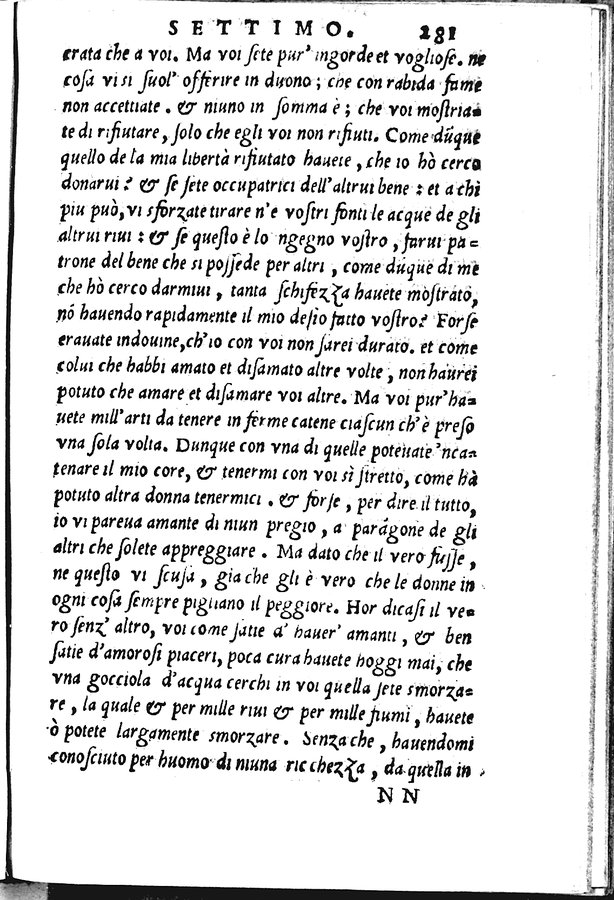 SETTIMO. 281
erata che a voi. Ma voi ſete pur' ingorde et vogliose. ne
coſa vi si ſuol' offerire in duono ; che con rabida fame
non accettiate . & niuno in ſomma è ; che voi moſtria=
te di rifiutare, ſolo che egli voi non rifiuti. Come dūque
quello de la mia libertà rifiutato hauete , che io hò cerco
donarui? & ſe ſete occupatrici dell'altrui bene : et a chi
piu può, vi sforzate tirare n'e voſtri fonti le acque de gli
altrui riui : & ſe queſto è lo ngegno voſtro , farui pa=
trone del bene che si poſſede per altri , come dūque di me
che hò cerco darmiui , tanta ſchifezza hauete moſtrato,
nō hauendo rapidamente il mio deſio fatto voſtro? Forſe
erauate indouine, ch'io con voi non ſarei durato. et come
colui che habbi amato et diſamato altre volte , non haurei
potuto che amare et diſamare voi altre. Ma voi pur' ha=
uete mill'arti da tenere in ferme catene ciaſcun ch'è preſo
vna ſola volta. Dunque con vna di quelle poteuate 'nca=
tenare il mio core, & tenermi con voi sì ſtretto, come hà
potuto altra donna tenermici . & forſe , per dire il tutto,
io vi pareua amante di niun pregio , a parágone de gli
altri che ſolete appreggiare . Ma dato che il vero fuſſe ,
ne queſto vi ſcuſa , gia che gli è vero che le donne in
ogni coſa ſempre pigliano il peggiore. Hor dicaſi il ve=
ro ſenz' altro, voi come ſatie d' hauer' amanti , & ben
ſatie d'amoroſi piaceri, poca cura hauete hoggi mai, che
vna gocciola d'acqua cerchi in voi quella ſete smorza=
re , la quale & per mille riui & per mille fiumi , hauete
ò potete largamente smorzare . Senza che , hauendomi
conoſciuto per huomo di niuna ricchezza , da quella in
NN